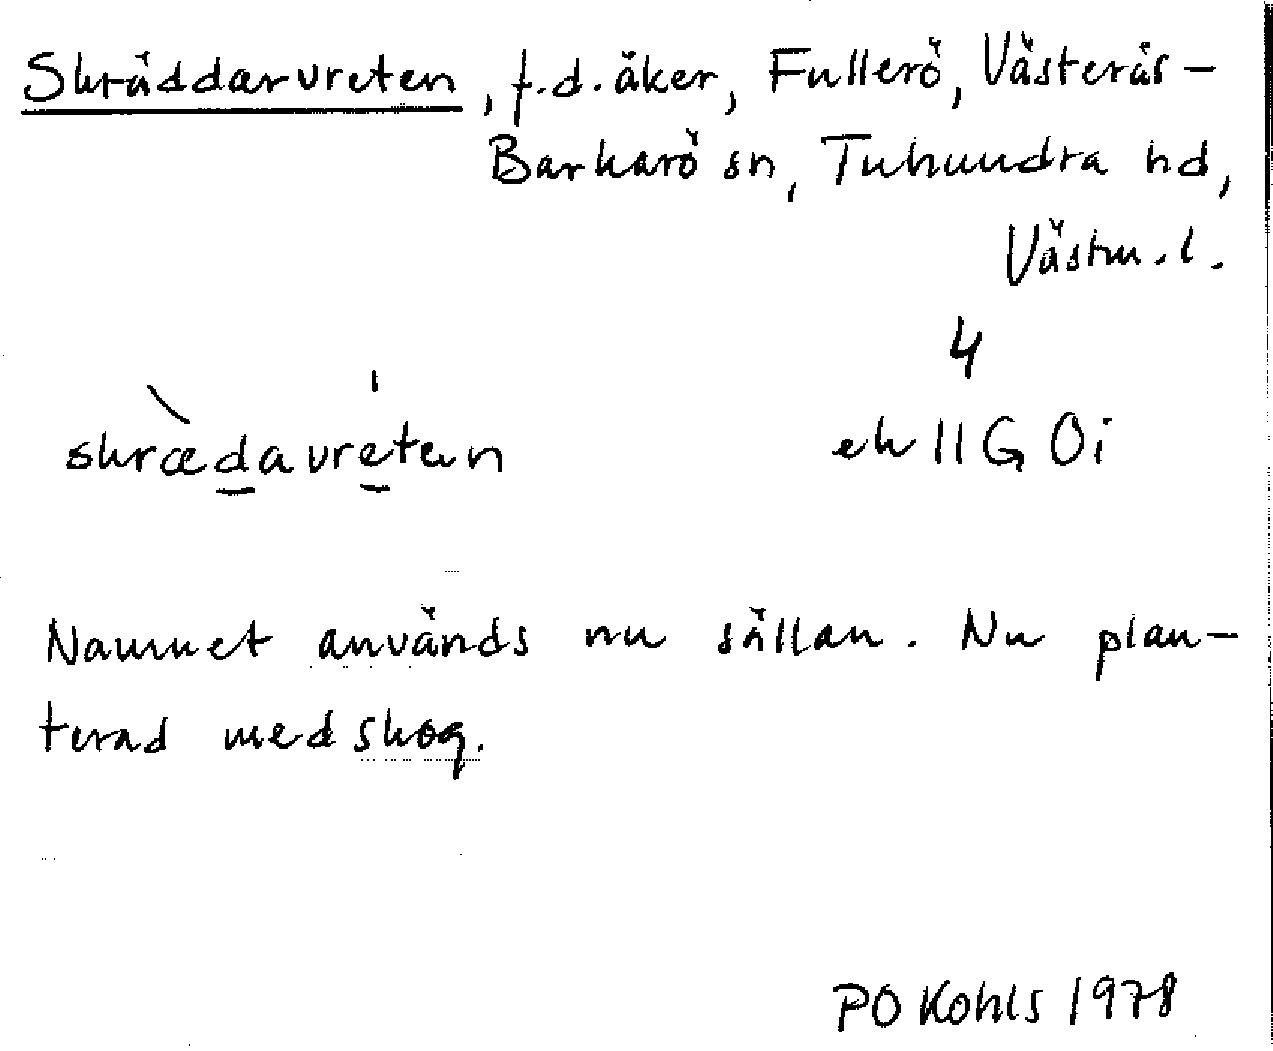 Skräddarvreten, f.d. åker, Fullerö, Västerås-
Barkarö sn, Tuhundra hd,
Västm. l.
4
skrædavretɛn
ek 11 G 0i
Namnet används nu sällan. Nu plan-
terad med skog.
PO Kohls 1978